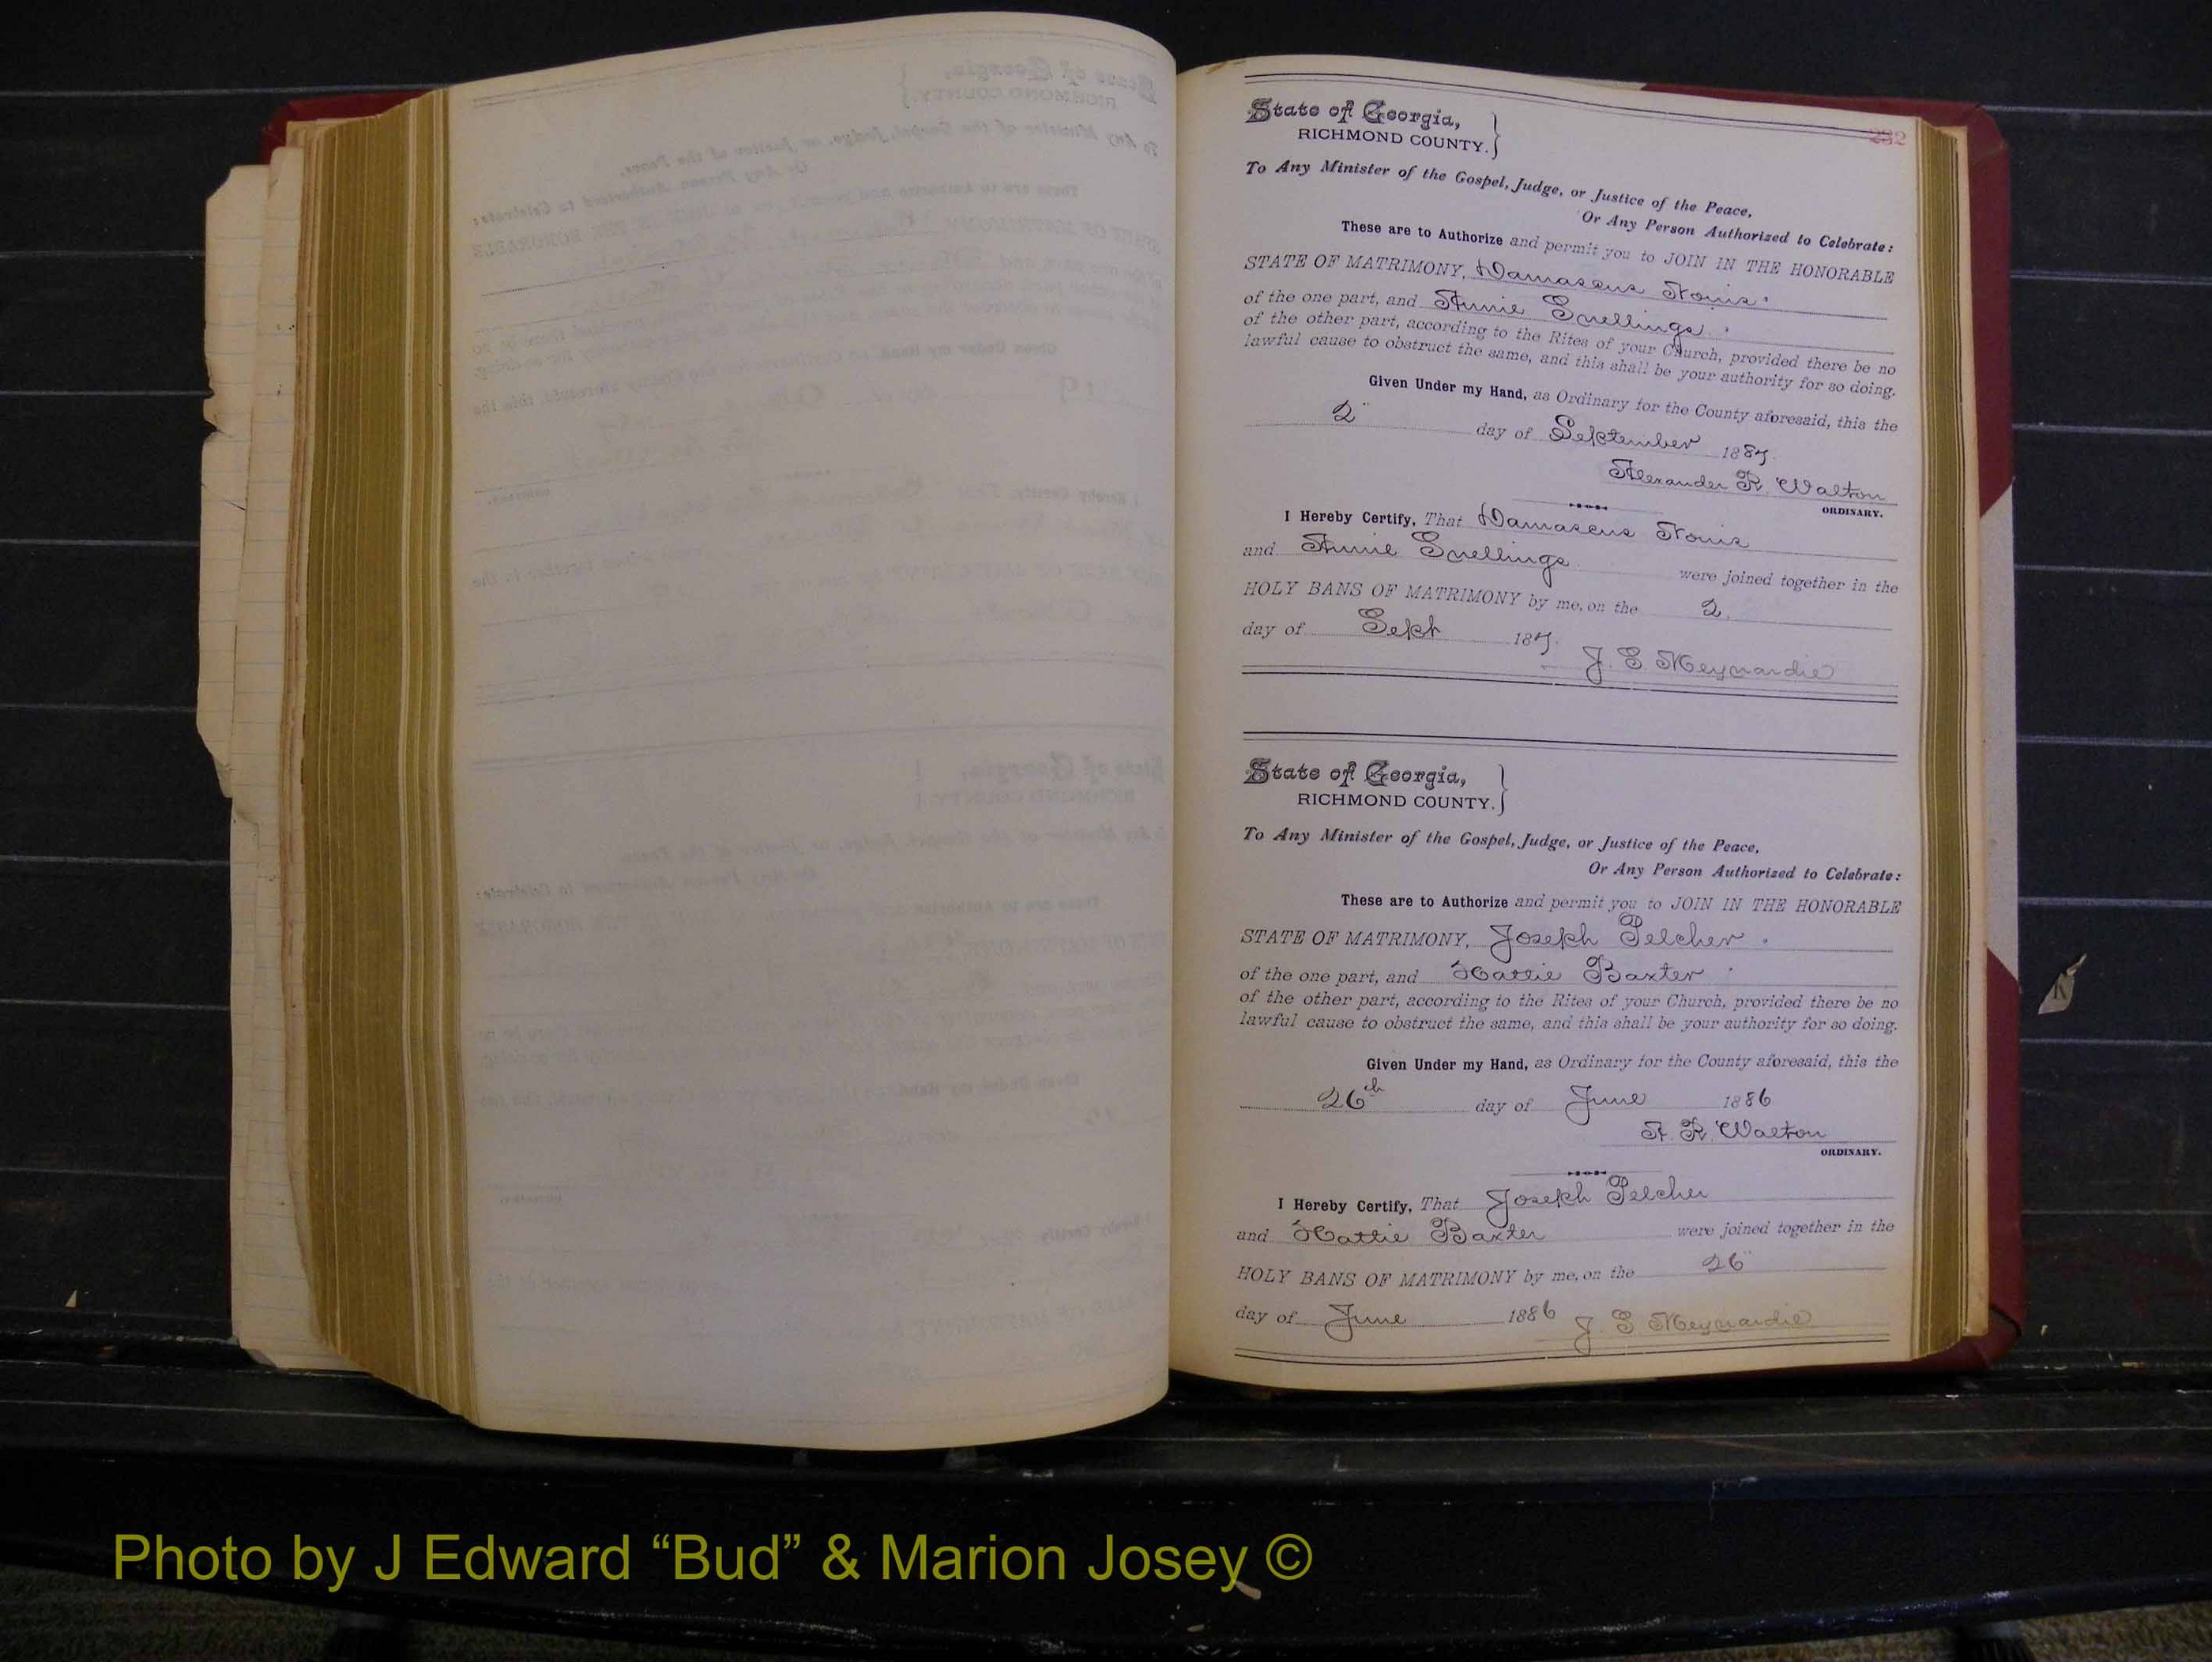 232
State of Georgia,
RICHMOND COUNTY.
To Any Minister of the Gospel, Judge, or Justice of the Peace,
Or Any Person Authorized to Celebrate:
These are to Authorize and permit you to JOIN IN THE HONORABLE
STATE OF MATRIMONY, Damascus
of the one part, and Annie Snellings
of the other part, according to the Rites of your Church, provided there be no
lawful cause to obstruct the same, and this shall be your authority for so doing.
Given Under my Hand, as Ordinary for the County aforesaid, this the
2" day of September 1887.
Alexander R. Walton
ORDINARY.
I Hereby Certify, That Damascus
and Annie Snellings were joined together in the
HOLY BANS OF MATRIMONY by me, on the 2.
day of Sept 187.
J. E. Meynardie
State of Georgia,
RICHMOND COUNTY.
To Any Minister of the Gospel, Judge, or Justice of the Peace,
Or Any Person Authorized to Celebrate:
These are to Authorize and permit you to JOIN IN THE HONORABLE
STATE OF MATRIMONY, Joseph Pelcher
of the one part, and Hattie Baxter
of the other part, according to the Rites of your Church, provided there be no
lawful cause to obstruct the same, and this shall be your authority for so doing.
Given Under my Hand, as Ordinary for the County aforesaid, this the
26th day of June 1886
A. R. Walton
ORDINARY.
I Hereby Certify, That Joseph Pelcher
and Hattie Baxter were joined together in the
HOLY BANS OF MATRIMONY by me, on the 26"
day of June 1886 J E Meynardie
Photo by J Edward “Bud” & Marion Josey ©